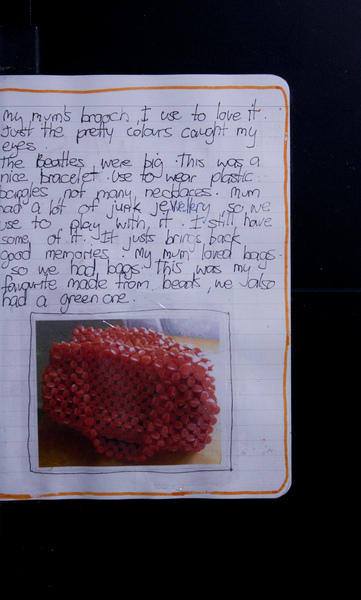 my mum's brooch, I use to love it.
Just the pretty colours caught my
eyes.
The Beatles were big. This was a
nice bracelet. Use to wear plastic
bangles not many necklaces. Mum
had a lot of junk jewellery so we
use to play with it. I still have
some of it. It justs brings back
good memories. My mum loved bags.
so we had bags. This was my
favourite made from beads, we also
had a green one.